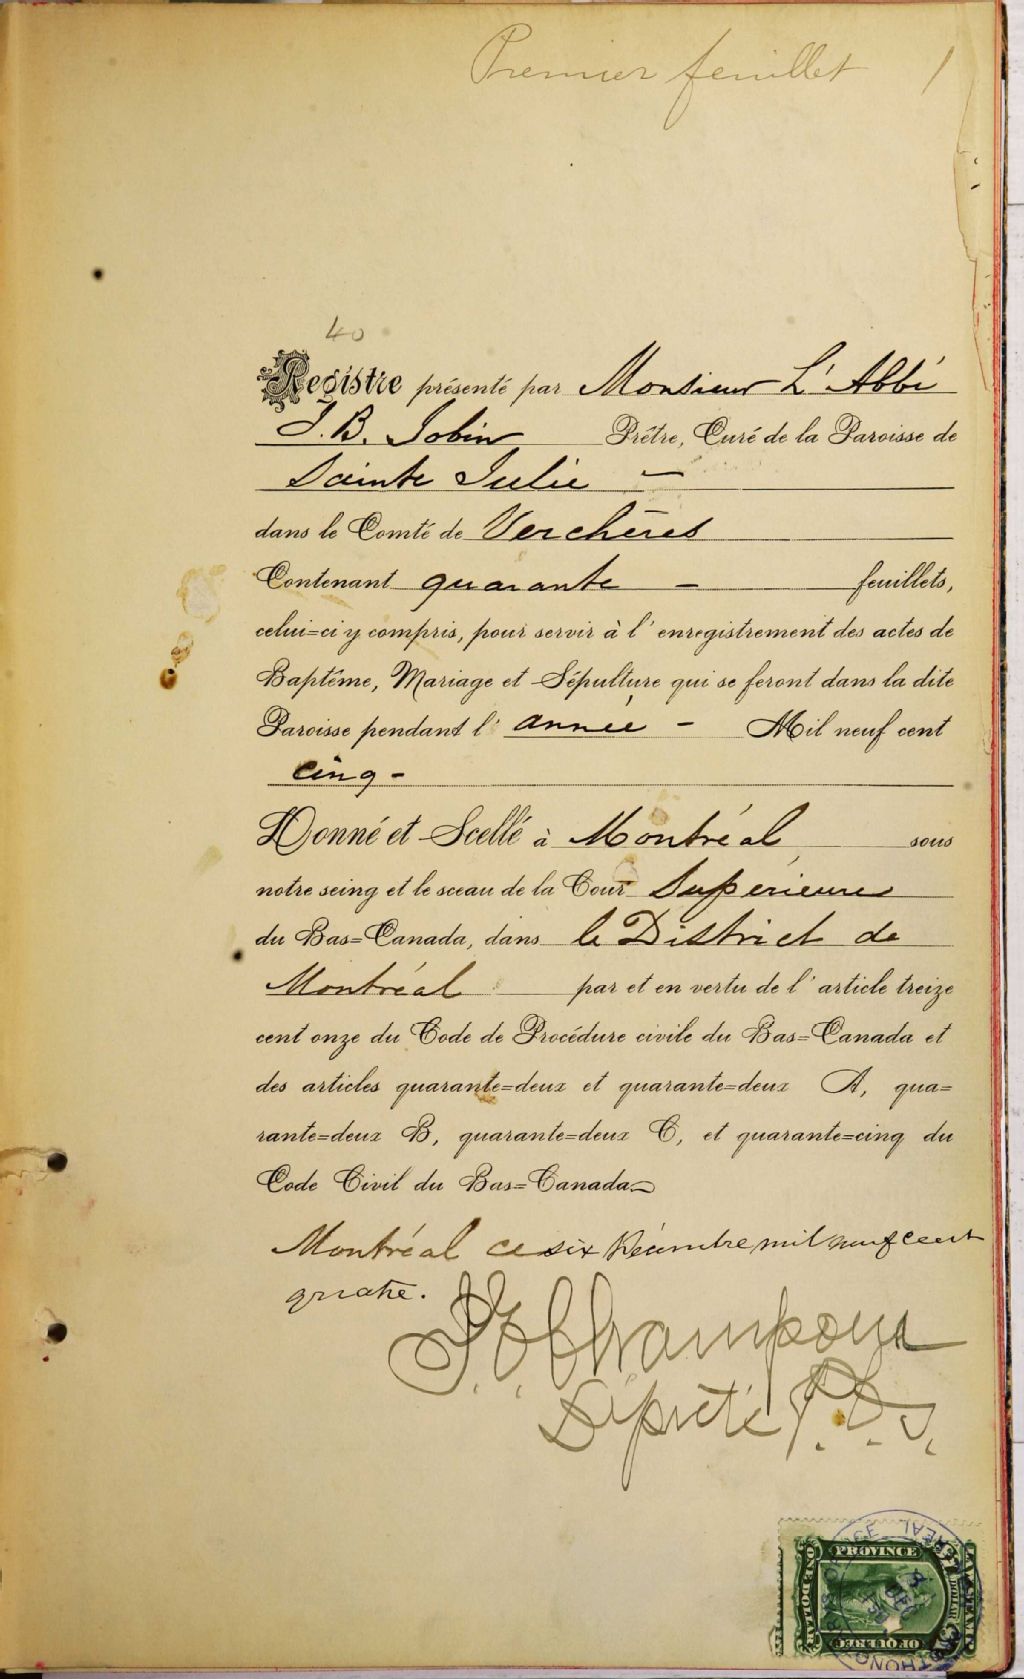 Premier feuillet 1
40
Registre présenté par Monsieur L'Abbé
J. B. Jobin Prêtre, Curé de la Paroisse de
Sainte Julie –
dans le Comté de Verchères
Contenant quarante – feuillets,
celui=ci y compris, pour servir à l'enregistrement des actes de
Baptême, Mariage et Sépulture qui se feront dans la dite
Paroisse pendant l'année – Mil neuf cent
cinq -
Donné et Scellé à Montréal sous
notre seing et le sceau de la Cour Supérieure
du Bas=Canada, dans le District de
Montréal par et en vertu de l'article treize
cent onze du Code de Procédure civile du Bas=Canada et
des articles quarante=deux et quarante=deux A, qua=
rante=deux B, quarante=deux C, et quarante=cinq du
Code Civil du Bas=Canada
Montréal ce six Décembre mil neuf cent
quatre.
Député P.C.S.
PROVINCE
OF QUEBEC
ONE DOLLAR
LAW STAMP